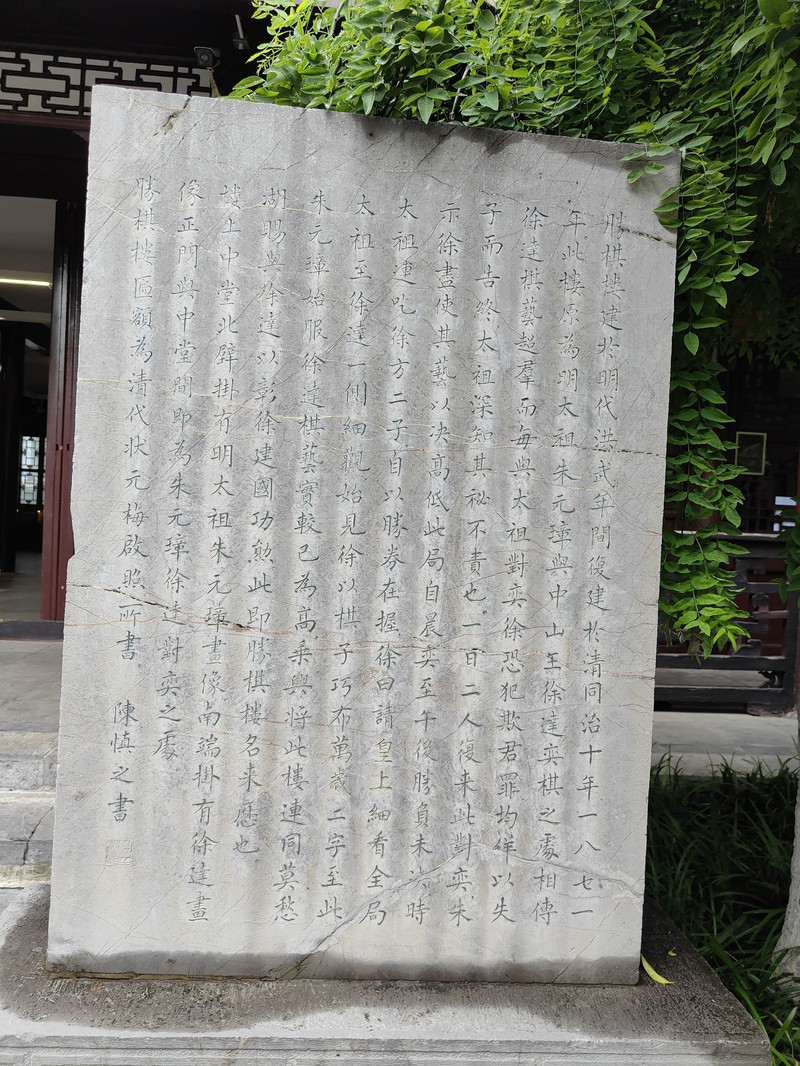 勝棋楼建於明代洪武年間復建於清同治十年一八七一
年此樓原為明太祖朱元璋與中山王徐達奕棋之處相傳
徐達棋藝超羣而每與太祖對奕徐恐犯欺君罪均佯以失
子而古終太祖深知其祕不責也一日二人復来此對奕朱
示徐盡使其藝以决高低此局自晨奕至午後勝負未時
太祖連吃徐方二子自以勝券在握徐曰請皇上細看全局
太祖至徐達一側細觀始見徐以棋子巧布萬歲二字至此
朱元璋始服徐達棋藝實較己為高乘興将此樓連同莫愁
湖賜與徐達以彰徐建國功勲此即勝棋樓名来歷也
樓上中堂北壁掛有明太祖朱元璋畫像南端掛有徐達畫
像正門與中堂間即為朱元璋徐達對奕之處
勝棋樓匾額為清代状元梅啟照所書 陳慎之書